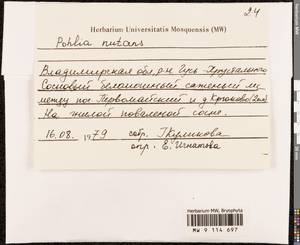 24
Herbarium Universitatis Mosquensis (MW)
Pohlia nutans
Владимирская обл. р-н Гусь-Хрустального
Сосновый беломошный саженый
между пос. Первомайский и д. Крюково
На гнилой поваленой сосне.
16.08. 1979 собр. Г. Куликова
опр. Е. Игнатова
Herbarium MW, Bryophyta
MW 9 114 697